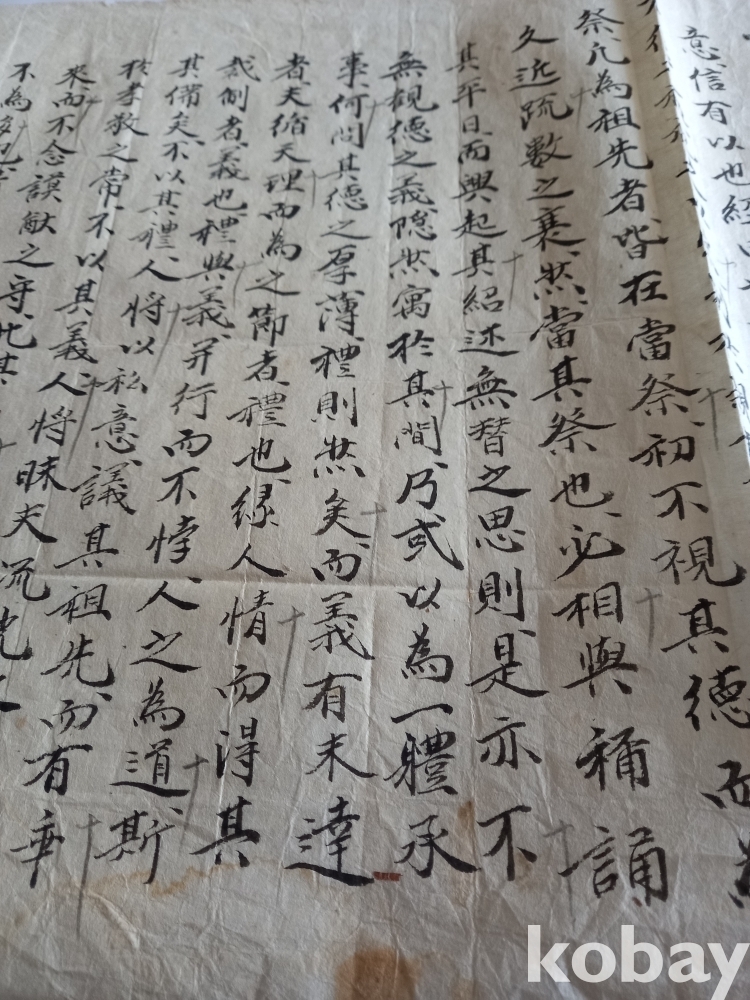 意信有以也經
祭凢為祖先者皆在當祭初不視其德而
久近疏數之襄然當其祭也必相與稱誦
其平日而興起其紹述無替之思則是亦不
無觀德之義隐然寓於其間乃或以為一軆承
事何問其德之厚薄禮則然矣而義有未達
者夫循天理而為之節者禮也縁人情而得其
裁制者義也禮與義并行而不悖人之為道斯
其備矣不以其禮人將以私意議其祖先而有乖
於孝敬之常不以其義人將昧夫流
來而不念謨猷之守此其
不為
kobay